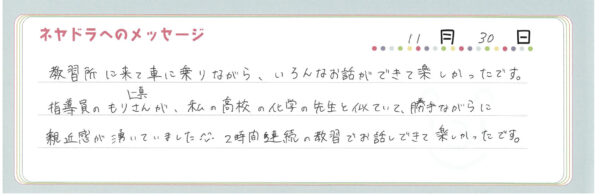 ネヤドラへのメッセージ
11月30日
教習所に来て車に乗りながら、いろんなお話ができて楽しかったです。
指導員のもりさんが、私の高校の化学の先生と似ていて、勝手ながらに
親近感が湧いていました 2時間継続の教習でお話しできて楽しかったです。